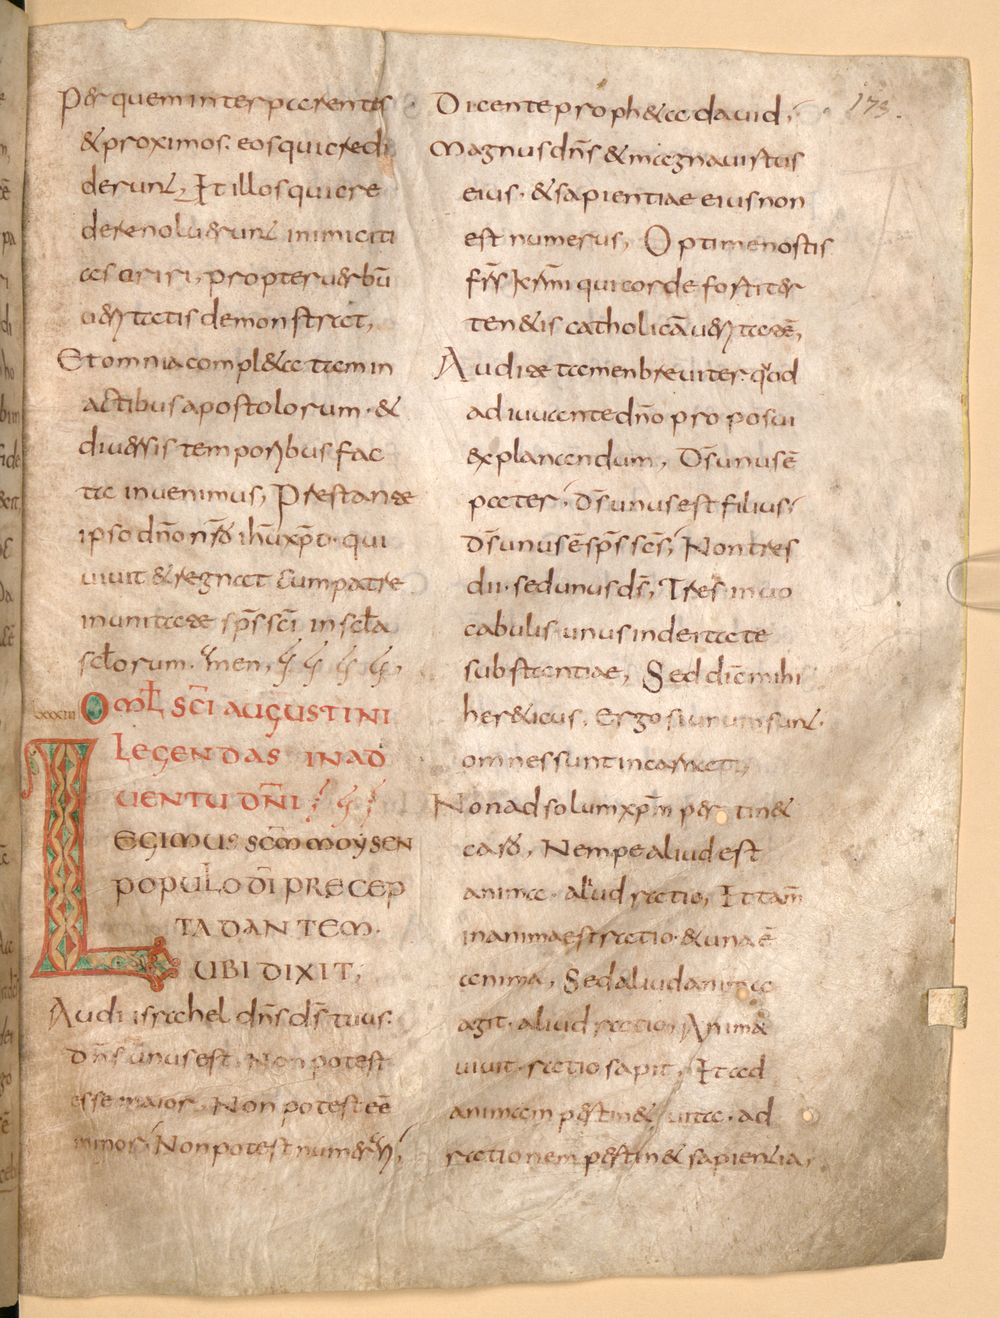 Per quem interparentes
& proximos. eos qui credi
derunt, Et illos qui cre
dere noluerunt inimiciti
as oriri, propter uerbū
ueritatis demonstrat,
Et omnia compl&a tam in
actibus apostolorum · &
diuersis temporibus fac
ta inuenimus, Prestante
ipso dn̄o nr̄o ihū xp̄o · qui
uiuit & regnat cum patre
in unitate sp̄s sc̄i in sc̄la
sc̄lorum. amen,
lxxxiii OML SC̄I AUGUSTINI
LEGENDAS IN AD
UENTU DN̄I
LEGIMUS SC̄M MOYSEN
POPULO DĪ PRECEP
TA DANTEM.
UBI DIXIT,
Audi israhel dn̄s ds̄ tuus.
Dn̄s unus est. Non potest
esse maior, Non potest eē
minor, Non potest numerari,
173.
Dicente proph&a dauid,
Magnus dn̄s & magna uirtus
eius · & sapientiae eius non
est numerus, Optime nostis
fr̄s kr̄mi qui corde fortiter
ten&is catholicā ueritatē,
Audite tamen breuiter. quod
adiuuante dn̄o proposui
explanandum, Ds̄ unus ē
pater, ds̄ unus est filius,
Ds̄ unus ē sp̄s sc̄s, Non tres
dii · sed unus ds̄, Tres in uo
cabulis unus in deitate
substantiae, Sed dic̄ mihi
her&icus, Ergo si unum sunt.
omnes sunt incarnati,
Non ad solum xp̄m pertin&
caro, Nempe aliud est
anima · aliud ratio, Et tam̄
in anima est ratio · & una ē
anima, Sed aliud anima
agit · aliud ratio, Anima
uiuit · ratio sapit, Et ad
animam pertin& uita · ad
rationem pertin& sapientia,